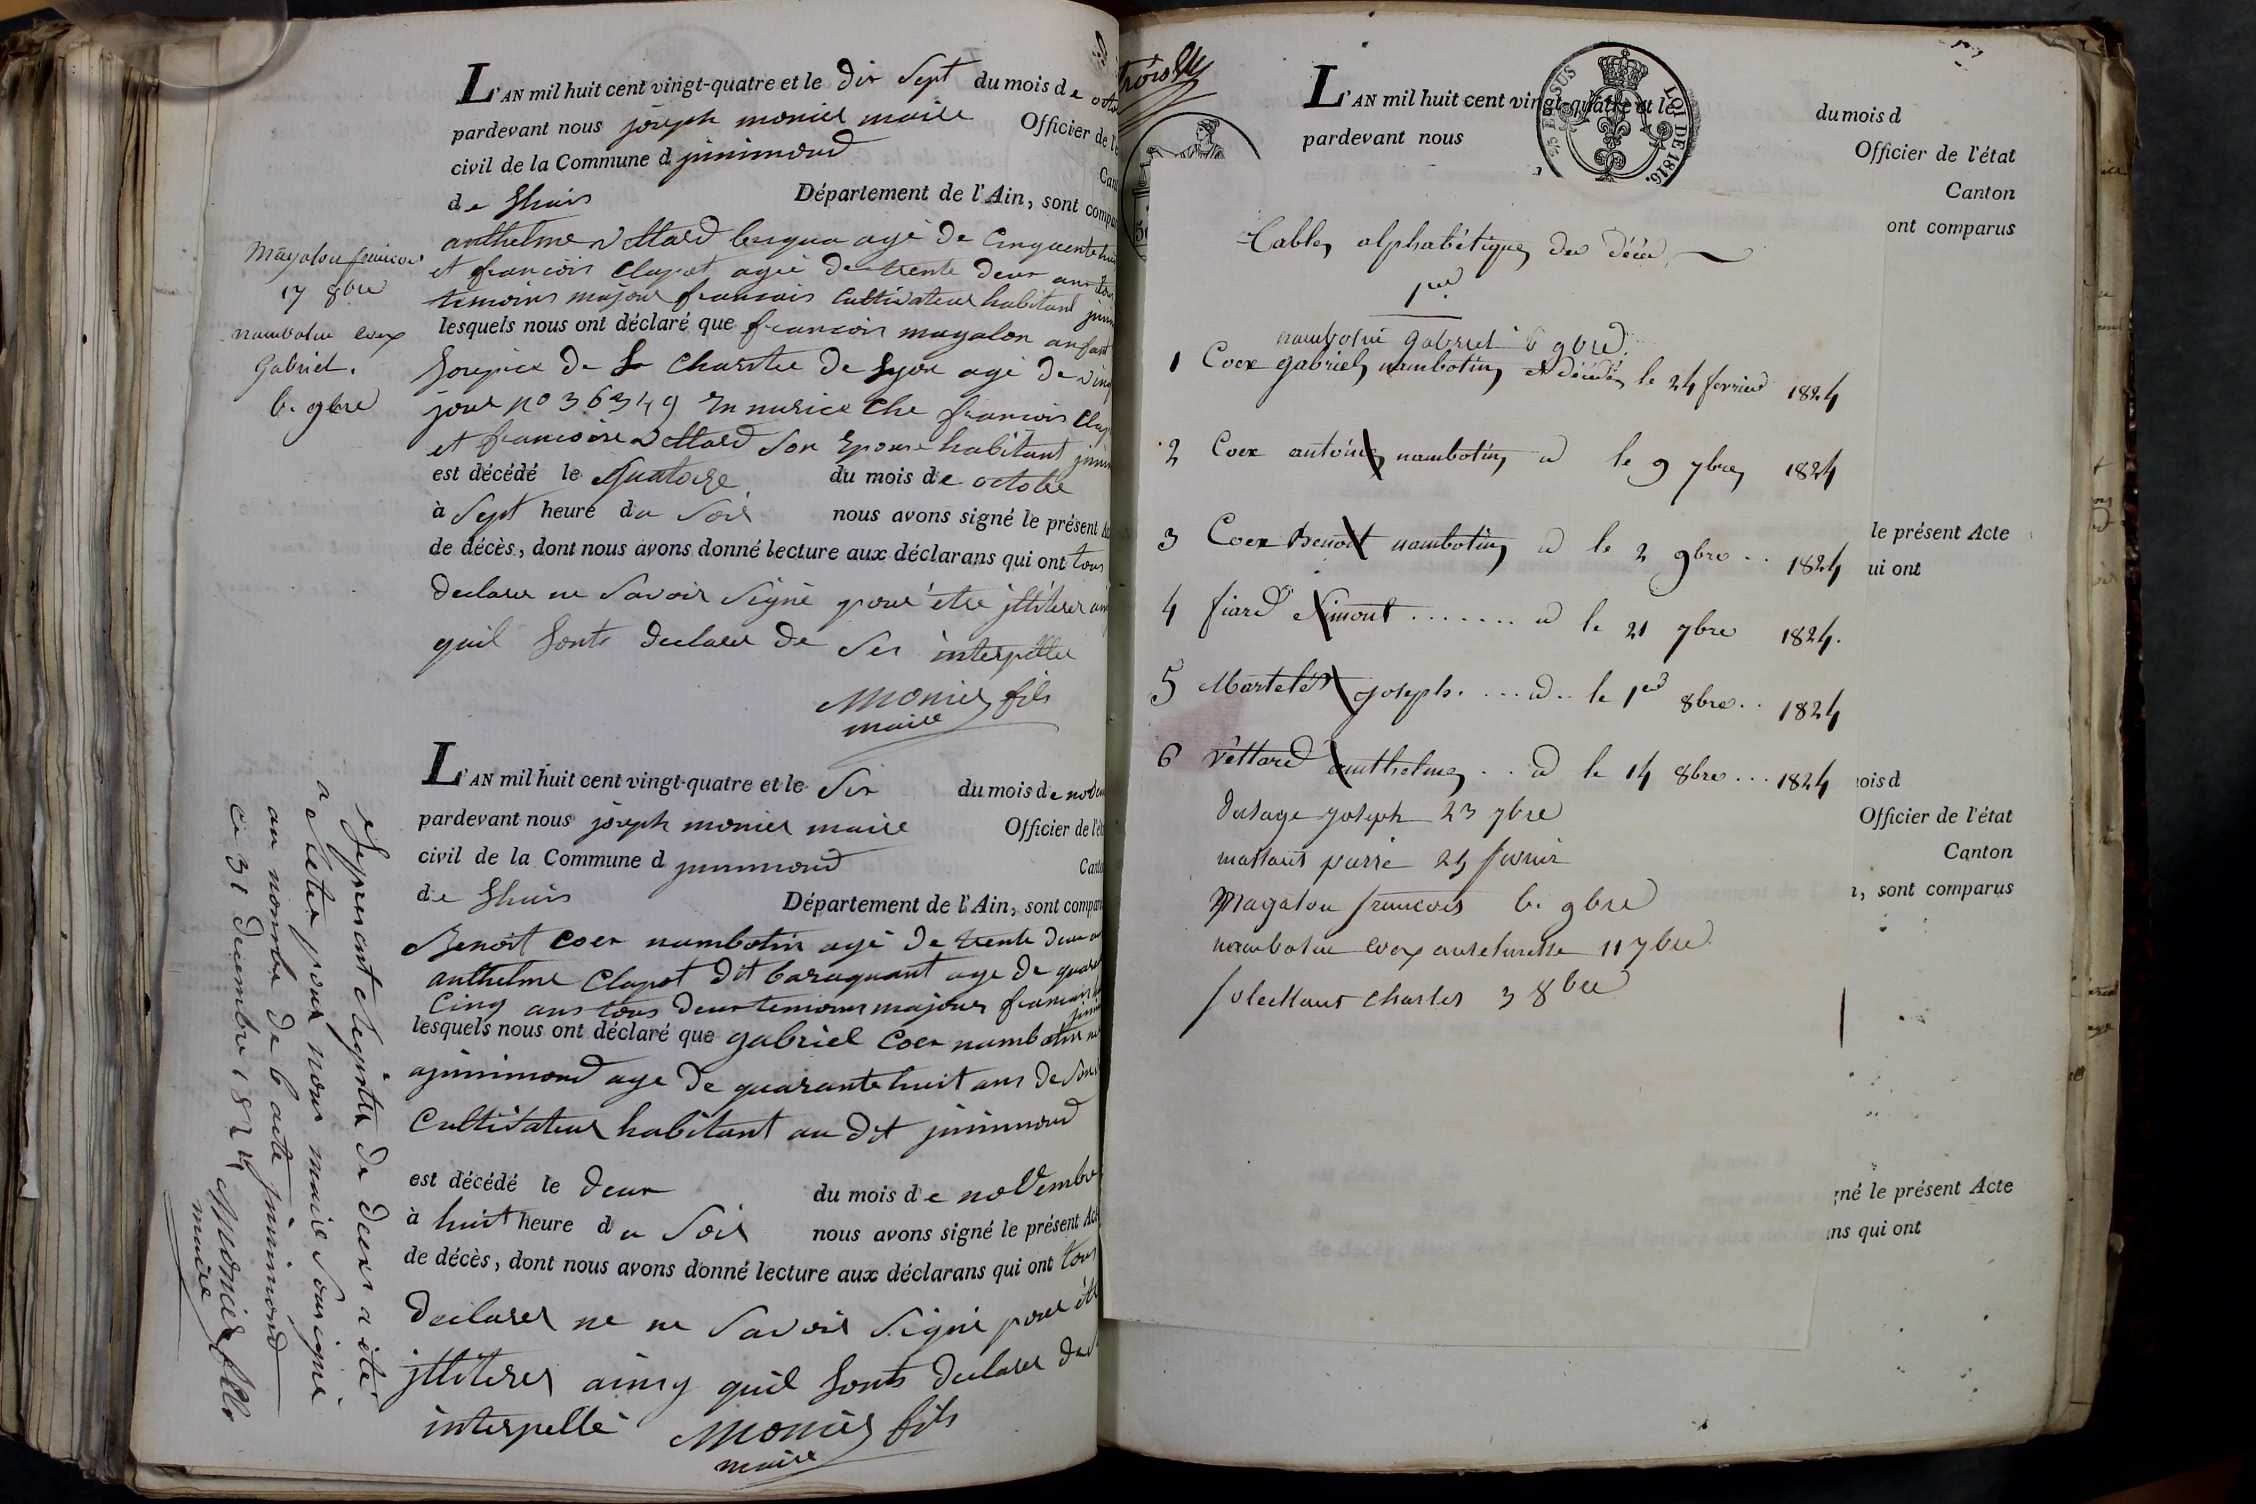 L'AN mil huit cent vingt-quatre et le dix Sept du mois de
pardevant nous joseph monier maire Officier de
civil de la Commune d jnnimond
de Lhuis Département de l'Ain, sont
anthelme Vettard agé de Cinquente
et francois Clapot agé de trente deux ans
temoins majour francais Cultivateur habitant
lesquels nous ont déclaré que francois magalon
de La Charitée de Lyon agé de
jour no 36349 En nurice Che francois
et francoise Vettard Son Epouse habitant
est décédé le Quatorze du mois de octobre
à Sept heure du Soir nous avons signé le présent
de décès, dont nous avons donné lecture aux déclarans qui ont tous
declarer ne Savoir Signé pour être jlliterer
quil Sonts declarer de Ses interpeller
Monier fils
maire
Magalon francois
17 8bre
nambotin coux
Gabriel.
6. 9bre
L'AN mil huit cent vingt-quatre et le Six du mois de
pardevant nous joseph monier maire Officier de
civil de la Commune d jnnimond
de Lhuis Département de l'Ain, sont
Benoit Coex nambotin agé de trente deux
anthelme Clapot dit baraquant age de
Cinq ans tous deux temoins majour francais
lesquels nous ont déclaré que gabriel Coex nambotin
ajnnimond age de quarante huit ans de Son
Cultivateur habitant au dit jnnimond
est décédé le deux du mois de novembre
à huit heure du Soir nous avons signé le présent
de décès, dont nous avons donné lecture aux déclarans qui ont tous
declarer ne ne Savoir Signé pour
jlliterer ainsy quil Sonts declarer
interpellé Monier fils
maire
Le present registre de deces a été
areter par nous maire Sousigné
au nombre de 6 acte jnnimond
Ce 31 decembre 1824 Monier fils
maire
trois
L'AN mil huit cent vingt-quatre et le du mois d
pardevant nous Officier de l'état
Canton
ont comparus
LOI DE 1816.
EN SUS
Table alphabétique des décés
nambotin Gabriel 6 9bre
1 Coex gabriel nambotin décédé le 24 fevrier 1824
2 Coex antoine nambotin d le 9 7bre 1824
3 Coex Benoit nambotin d le 2 9bre .. 1824
4 fiard Simont ....... d le 21 7bre 1824.
5 Martelet joseph. ... d .. le 1er 8bre .. 1824
6 Vettard anthelme .. d le 14 8bre ... 1824
joseph 23 7bre
pierre 24 fevrier
Magalon francois 6. 9bre
nambotin coex 11 7bre
Charles 3 8bre
le présent Acte
ui ont
ois d
Officier de l'état
Canton
, sont comparus
gné le présent Acte
ns qui ont